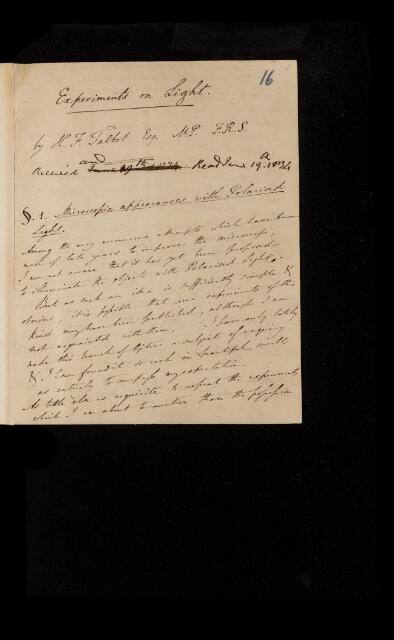 16
Experiments on Light.
by H. F. Talbot Esq. M.P. F.R.S.
Received and June 19th 1834 Read June 19th. 1834
§. 1. Microscopic appearances with Polarised
Light.
Among the very numerous attempts which have been
made of late years to improve the microscope,
I am not aware that it has yet been proposed
to illuminate the objects with Polarised Light.
But as such an idea is sufficiently simple &
obvious, it is possible that some experiments of this
kind may have been published, although I am
not acquainted with them. I have only lately
made this branch of Optics a subject of enquiry
& I have found it so rich in beautiful results
as entirely to surpass my expectation.
As little else is requisite to repeat the experiments
which I am about to mention than the possession